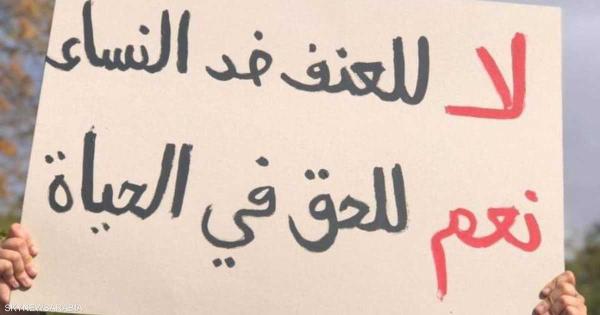 لا للعنف ضد النساء
نعم للحق في الحياة
SKYNEWSARABIA